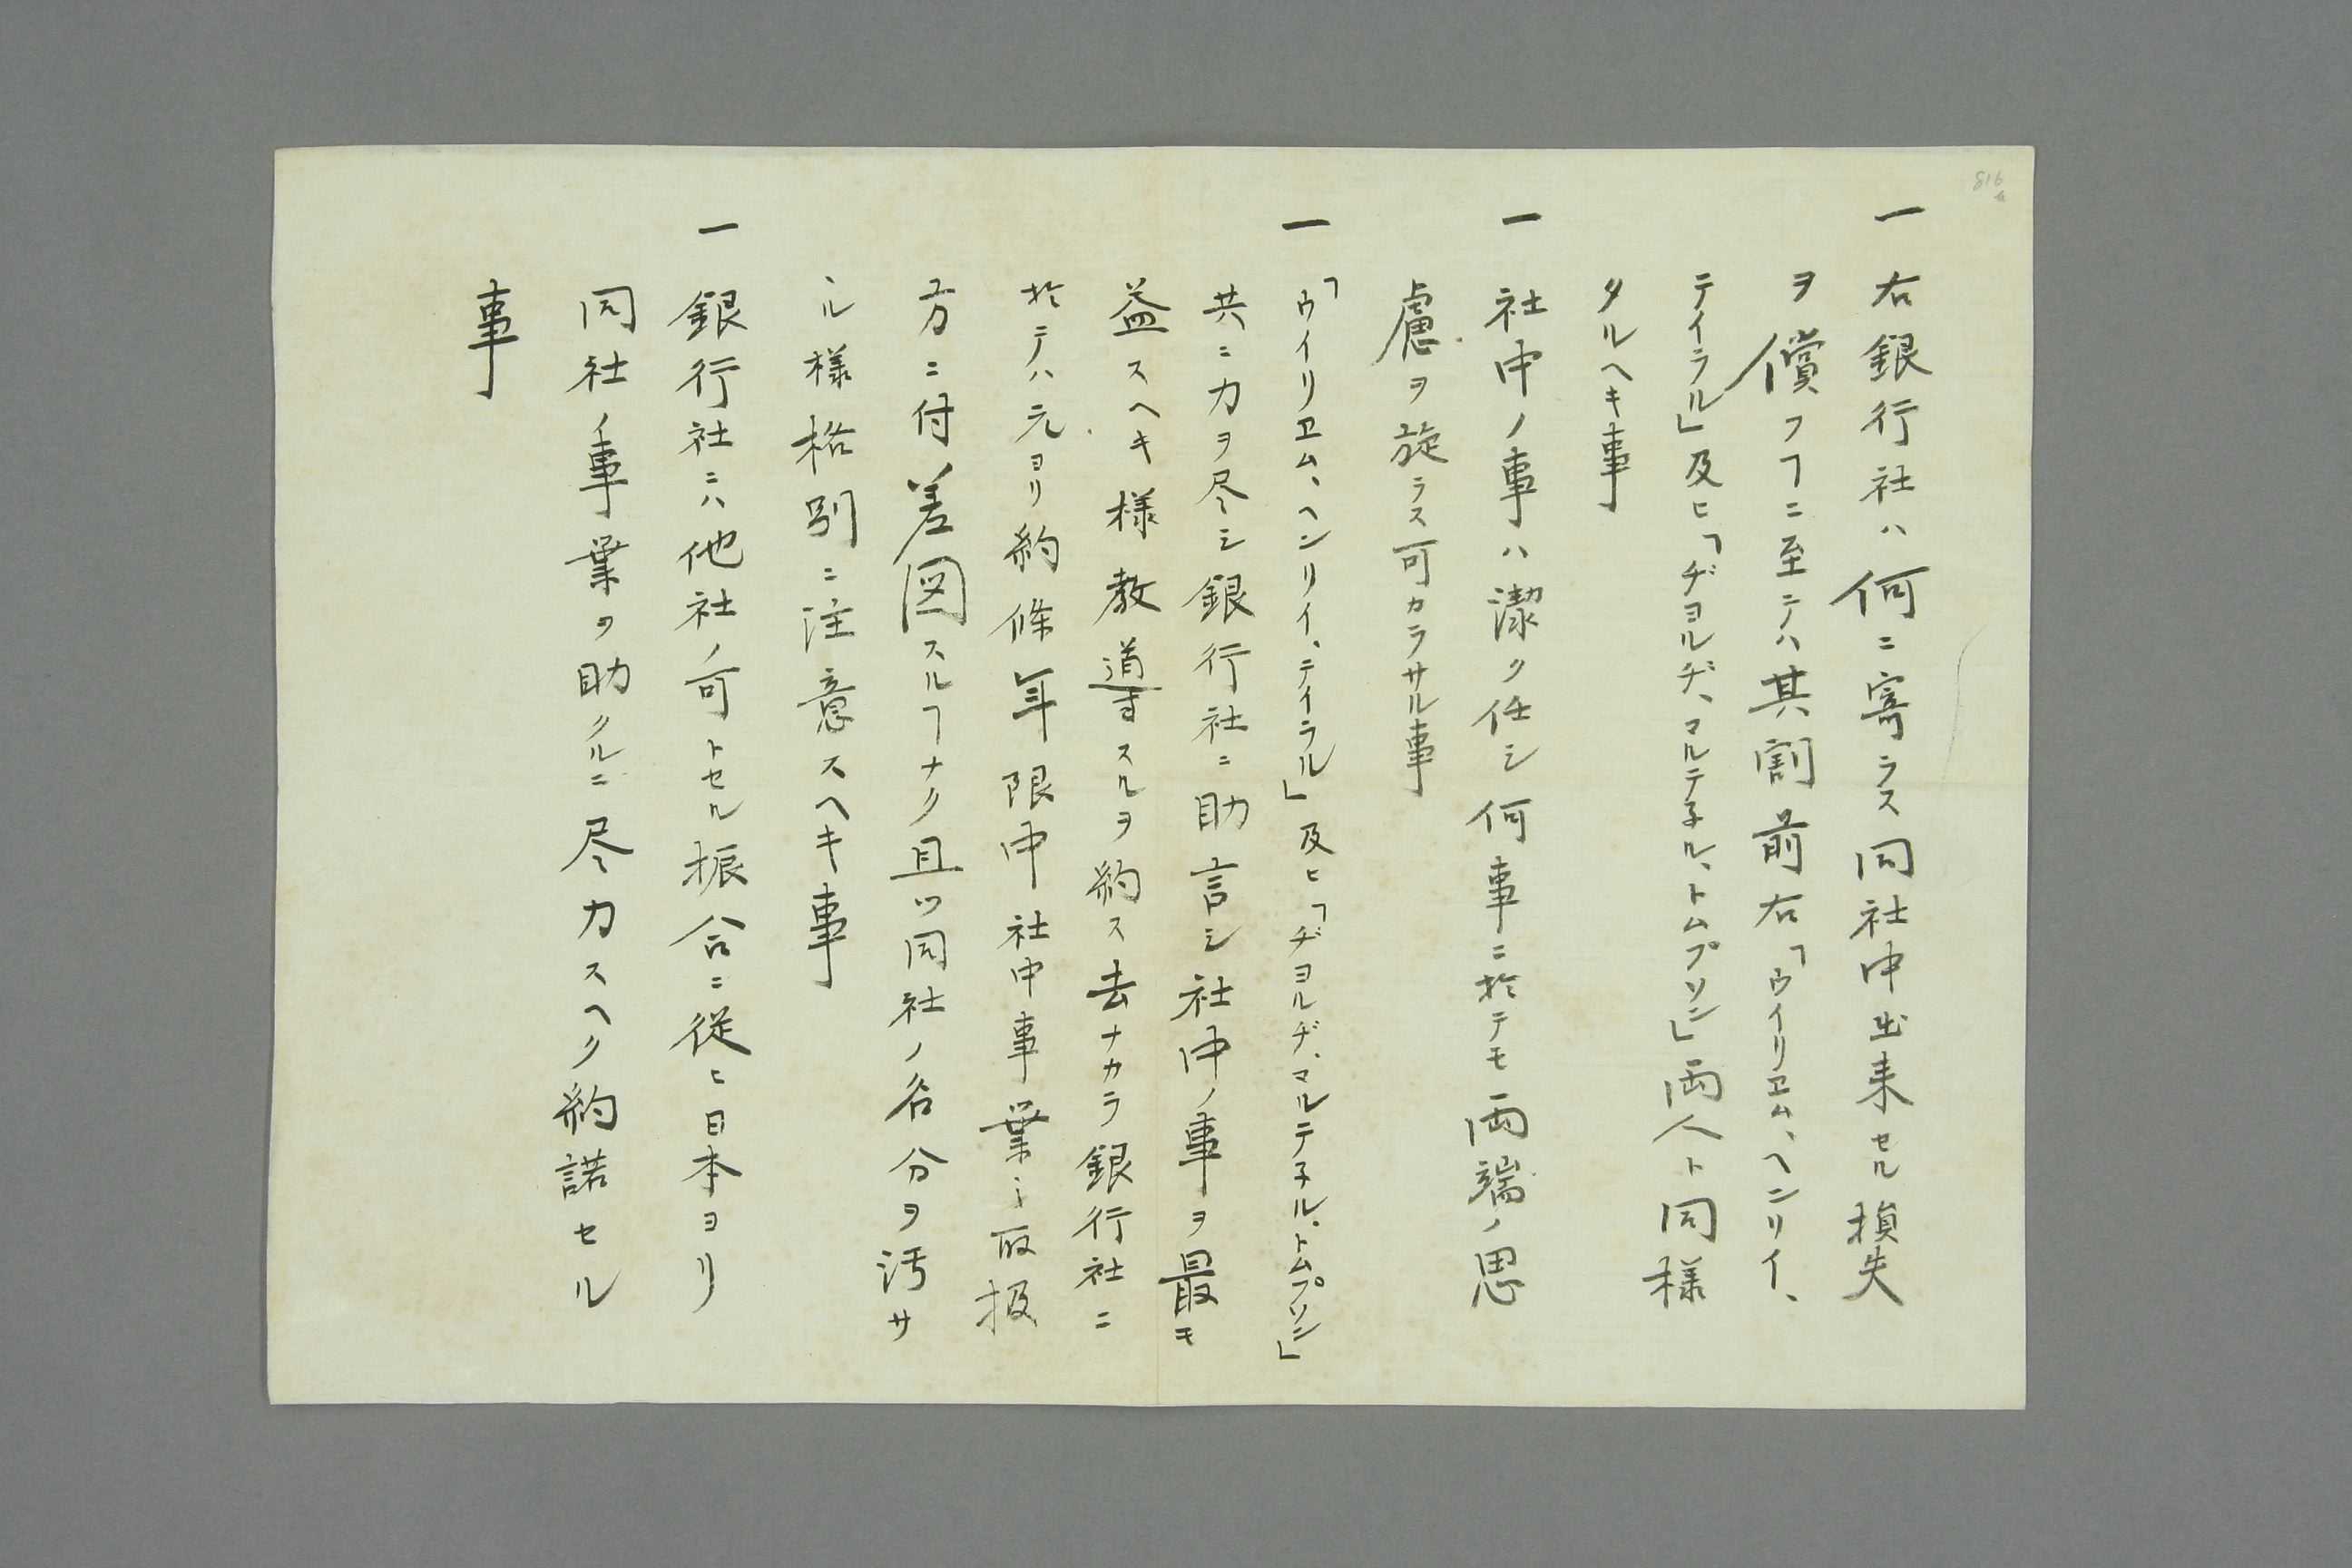 816
一 右銀行社ハ何ニ寄ラス同社中出来セル損失
ヲ償フヿニ至テハ其割前右「ウイリヱム、ヘンリイ、
テイラル」及ヒ「ヂヨルヂ、マルテ子ル、トムプソン」両人ト同様
タルヘキ事
一 社中ノ事ハ潔ク任シ何事ニ於テモ両端ノ思
慮ヲ旋ラス可カラサル事
一 「ウイリヱム、ヘンリイ、テイラル」及ヒ「ヂヨルヂ、マルテ子ル、トムプソン」
共ニ力ヲ尽シ銀行社ニ助言シ社中ノ事ヲ最モ
益スヘキ様教導スルヲ約ス去ナカラ銀行社ニ
於テハ元ヨリ約條年限中社中事業ノ取扱
方ニ付差図スルヿナク且ツ同社ノ名分ヲ汚サ
ヽル様格別ニ注意スヘキ事
一 銀行社ニハ他社ノ可トセル振合ニ従ヒ日本ヨリ
同社ノ事業ヲ助クルニ尽力スヘク約諾セル
事